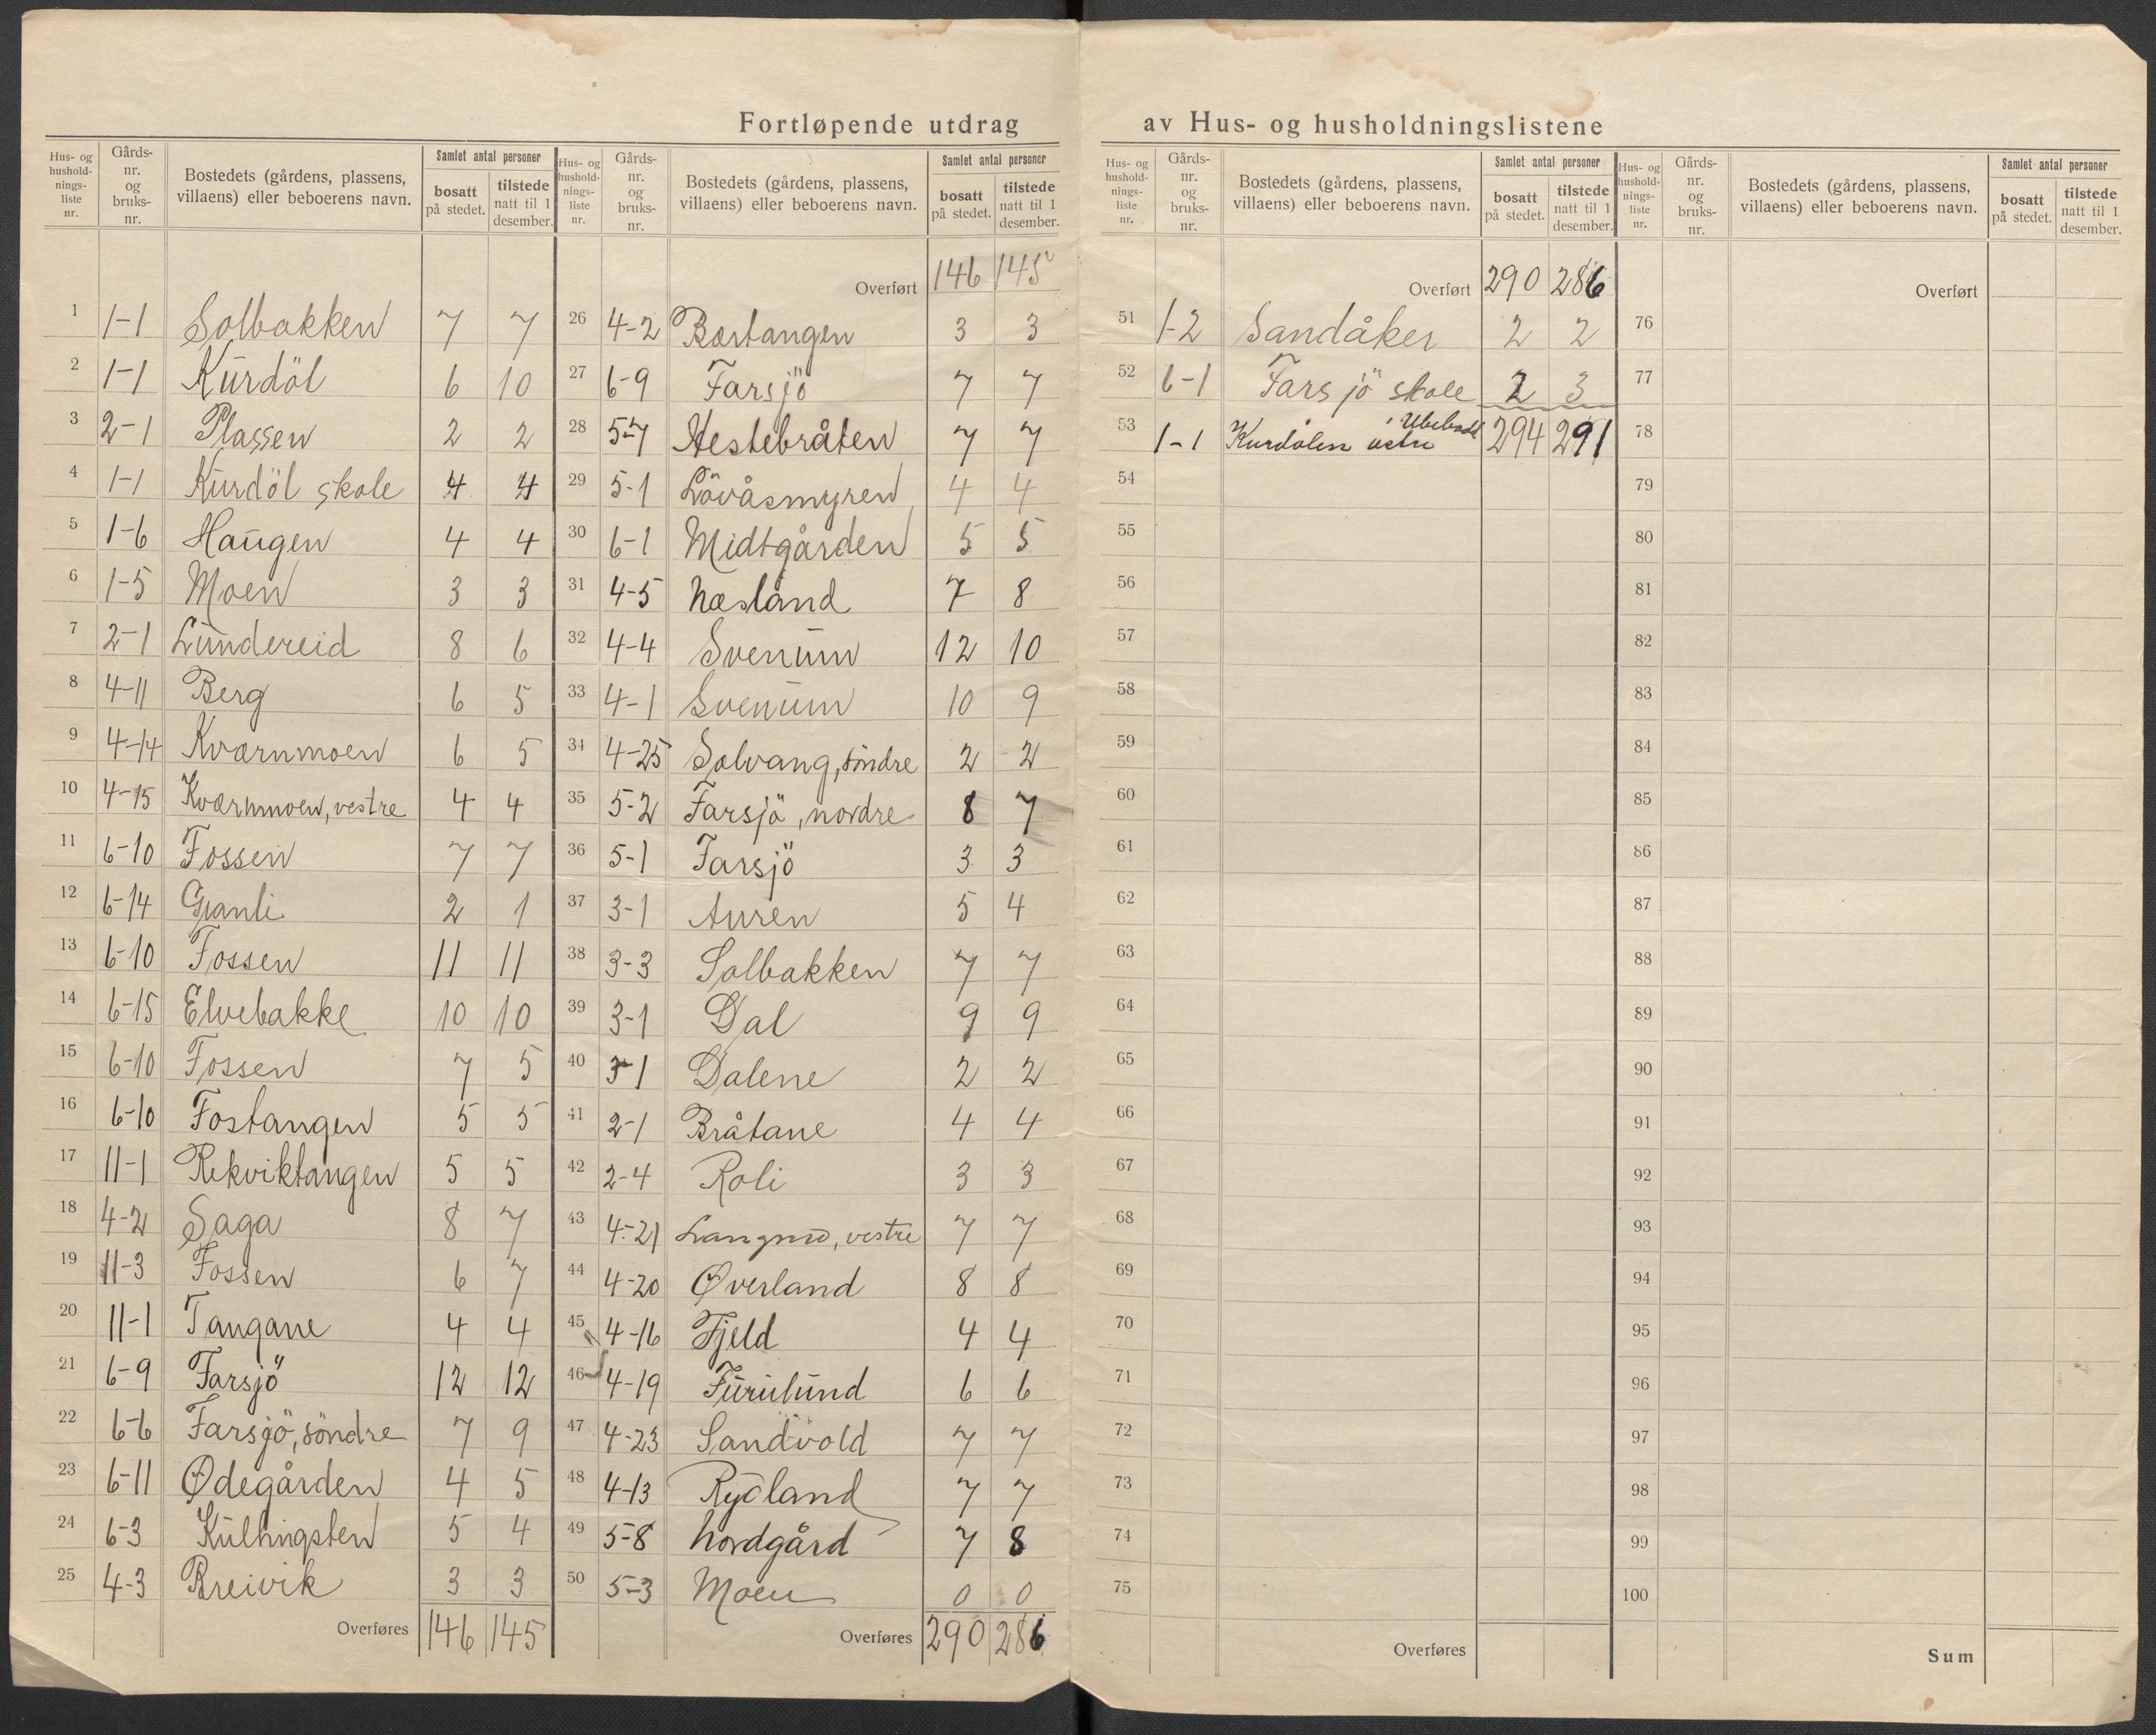 Fortløpende utdrag av Hus- og husholdningslistene
Hus- og husholdnings- liste nr. | Gårds- nr. og bruks- nr. | Bostedets (gårdens, plassens, villaens) eller beboerens navn. | Samlet antal personer | bosatt på stedet. | tilstede natt til 1 desember.
1 1-1 Solbakken 7 7
2 1-1 Kurdöl 6 10
3 2-1 Plassen 2 2
4 1-1 Kurdöl skole 4 4
5 1-6 Haugen 4 4
6 1-5 Moen 3 3
7 2-1 Lundereid 8 6
8 4-11 Berg 6 5
9 4-14 Kværnmoen 6 5
10 4-15 Kværnmoen, vestre 4 4
11 6-10 Fossen 7 7
12 6-14 Granli 2 1
13 6-10 Fossen 11 11
14 6-15 Elvebakke 10 10
15 6-10 Fossen 7 5
16 6-10 Fostangen 5 5
17 11-1 Rekviktangen 5 5
18 4-2 Saga 8 7
19 11-3 Fossen 6 7
20 11-1 Tangane 4 4
21 6-9 Farsjö 12 12
22 6-6 Farsjö, söndre 7 9
23 6-11 Ødegården 4 5
24 6-3 5 4
25 4-3 Breivik 3 3
Overføres 146 145
Hus- og husholdnings- liste nr. | Gårds- nr. og bruks- nr. | Bostedets (gårdens, plassens, villaens) eller beboerens navn. | Samlet antal personer | bosatt på stedet. | tilstede natt til 1 desember.
Overført 146 145
26 4-2 3 3
27 6-9 Farsjö 7 7
28 5-7 Hestebråten 7 7
29 5-1 Lövåsmyren 4 4
30 6-1 Midtgården 5 5
31 4-5 Næsland 7 8
32 4-4 Svenum 12 10
33 4-1 Svenum 10 9
34 4-25 Solvang, söndre 2 2
35 5-2 Farsjö, nordre 8 7
36 5-1 Farsjö 3 3
37 3-1 Auren 5 4
38 3-3 Solbakken 7 7
39 3-1 Dal 9 9
40 3-1 Dalene 2 2
41 2-1 Bråtane 4 4
42 2-4 Roli 3 3
43 4-21 Langmo, vestre 7 7
44 4-20 Øverland 8 8
45 4-16 Fjeld 4 4
46 4-19 Furulund 6 6
47 4-23 Sandvold 7 7
48 4-13 Rydland 7 7
49 5-8 Nordgård 7 8
50 5-3 Moen 0 0
Overføres 290 286
Hus- og husholdnings- liste nr. | Gårds- nr. og bruks- nr. | Bostedets (gårdens, plassens, villaens) eller beboerens navn. | Samlet antal personer | bosatt på stedet. | tilstede natt til 1 desember.
Overført 290 286
51 1-2 Sandåker 2 2
52 6-1 Farsjö skole 2 3
53 1-1 Kurdölen östre Ubebodt 294 291
54
55
56
57
58
59
60
61
62
63
64
65
66
67
68
69
70
71
72
73
74
75
Overføres
Hus- og husholdnings- liste nr. | Gårds- nr. og bruks- nr. | Bostedets (gårdens, plassens, villaens) eller beboerens navn. | Samlet antal personer | bosatt på stedet. | tilstede natt til 1 desember.
Overført
76
77
78
79
80
81
82
83
84
85
86
87
88
89
90
91
92
93
94
95
96
97
98
99
100
Sum